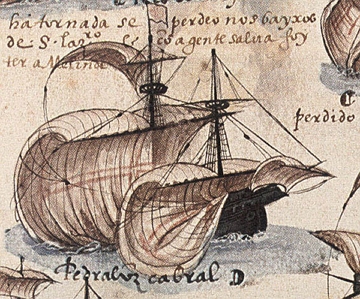 ha tornada se perdeo nos bayxos
de S. laz.ro e a gente salva foy
ter a Melinde
perdido
Pedralvz cabral D